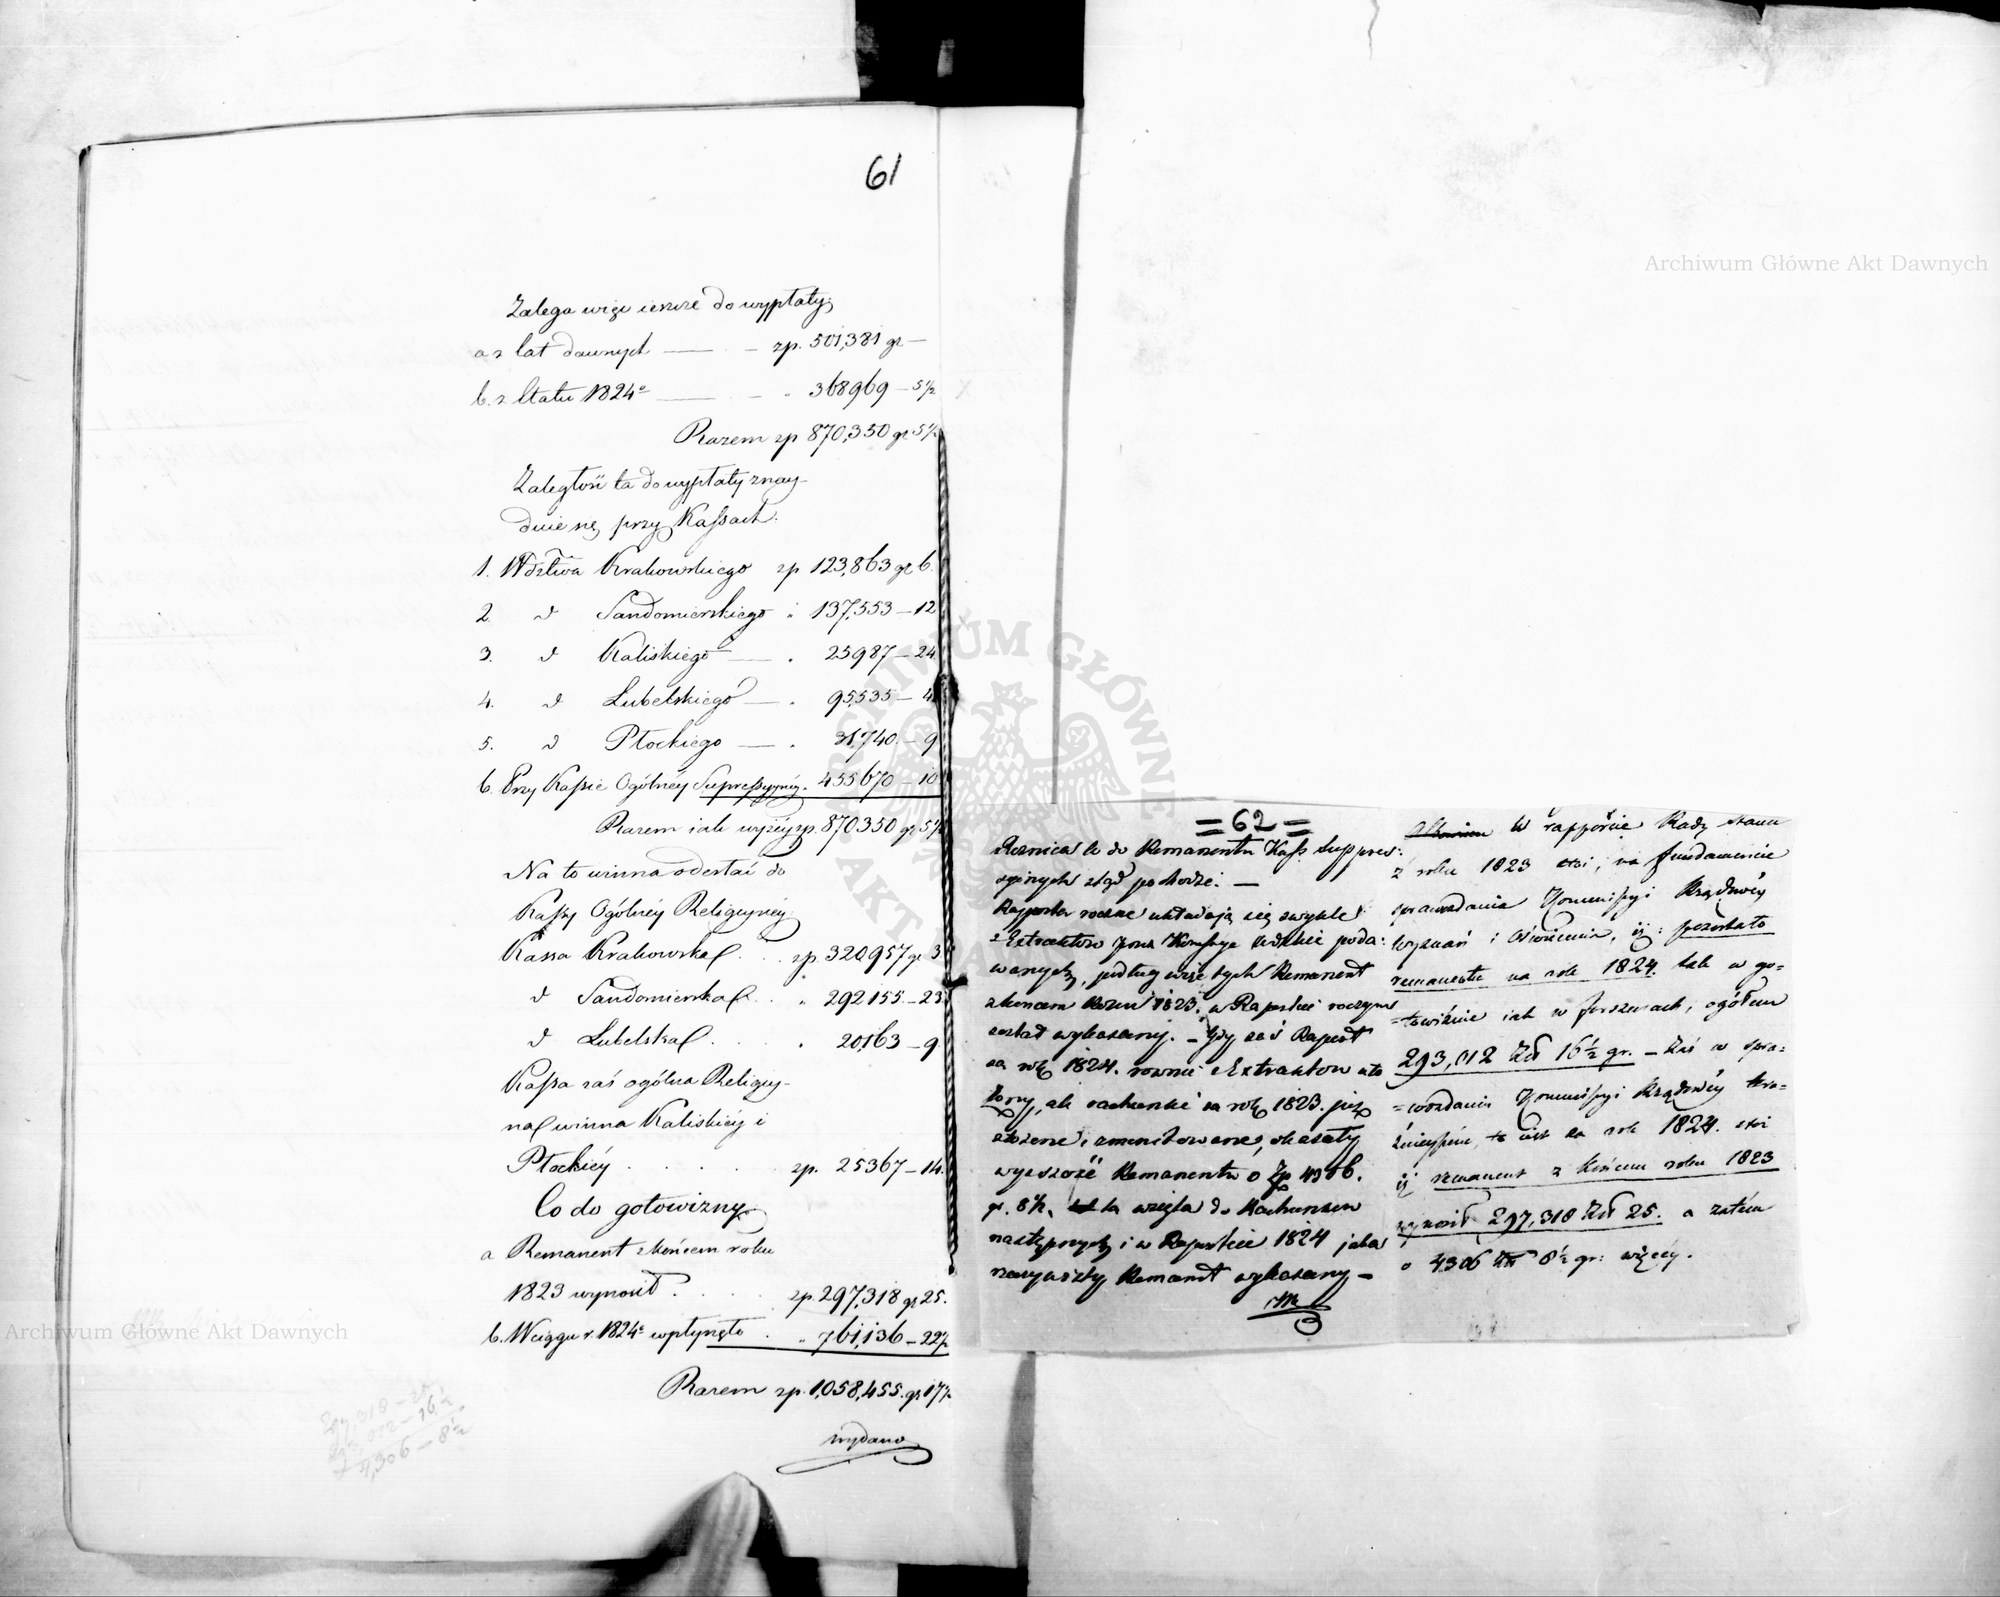 61
Zalega więc ieszcze do wypłaty
a z lat dawnych — — zp. 501,381 gr —
b. z Etatu 1824º — — „ 368969 — 5½
Razem zp 870,350 gr 5½
Zaległość ta do wypłaty znay-
duie się przy Kassach.
1. Wdztwa Krakowskiego zp 123,863 gr 6.
2. d Sandomierskiego „ 137,553 — 12
3. d Kaliskiego — „ 25987 — 24
4. d Lubelskiego — „ 95,535 — 4
5. d Płockiego — „ 31,740 — 9
6. Przy Kassie Ogólnéy Supressyynéy „ 455670 — 10
Razem iak wyżéy zp. 870350 gr 5½
Na to winna odesłać do
Kassy Ogólnéy Religiynéy
Kassa Krakowska . . zp. 320,957 gr 3
d Sandomierska . „ 292155 — 23
d Lubelska . . „ 20,163 — 9
Kassa zaś ogólna Religiy-
na winna Kaliskiéy i
Płockiéy . . . . zp. 25367 — 14.
Co do gotowizny
a Remanent z końcem roku
1823 wynosił . . . zp. 297,318 gr 25.
b. W ciągu r. 1824º wpłynęło . „ 761,136 — 22½
Razem zp. 1,058,455. gr 17½
wydano
297,318 — 25
293,012 — 16½
4,306 — 8½
= 62 =
Roznica co do Remanentu Kass Suppres:
syinych ztąd pochodzi. —
Rapporta roczne układają się zwykle
z Extraktow przez Komissye Wdzkie poda:
wanych, podług więc tych Remanent
z koncem Roku 1823. w Raporcie rocznym
został wykazany. — Gdy zaś Raport
za rok 1824. rownie z Extraktow uło
żony, ale rachunki za rok 1823. już
złożone i zmonitowane, okazały
wyzszość Remanentu o Zp 4306.
gr. 8½, ta wzięta do Rachunkow
następnych i w Raporcie 1824 jako
rzeczywisty Remanent wykazany —
W rapporcie Rady stanu
z roku 1823 stoi, na fundamencie
sprawozdania Kommissyi Rządowéy
Wyznań i Oświecenia, iż: pozostało
remanentu na rok 1824. tak w go=
=towiznie iak w forszusach, ogółem
293,012 Zł 16½ gr. — Zaś w spra=
=wozdaniu Kommissyi Rządowéy
to iest za rok 1824. stoi
iż remanent z końcem roku 1823
wynosił 297,318 Zł 25. a zatém
o 4306 Zł 8½ gr: więcéy.
Archiwum Główne Akt Dawnych
Archiwum Główne Akt Dawnych
ARCHIWUM GŁÓWNE AKT DAWNYCH